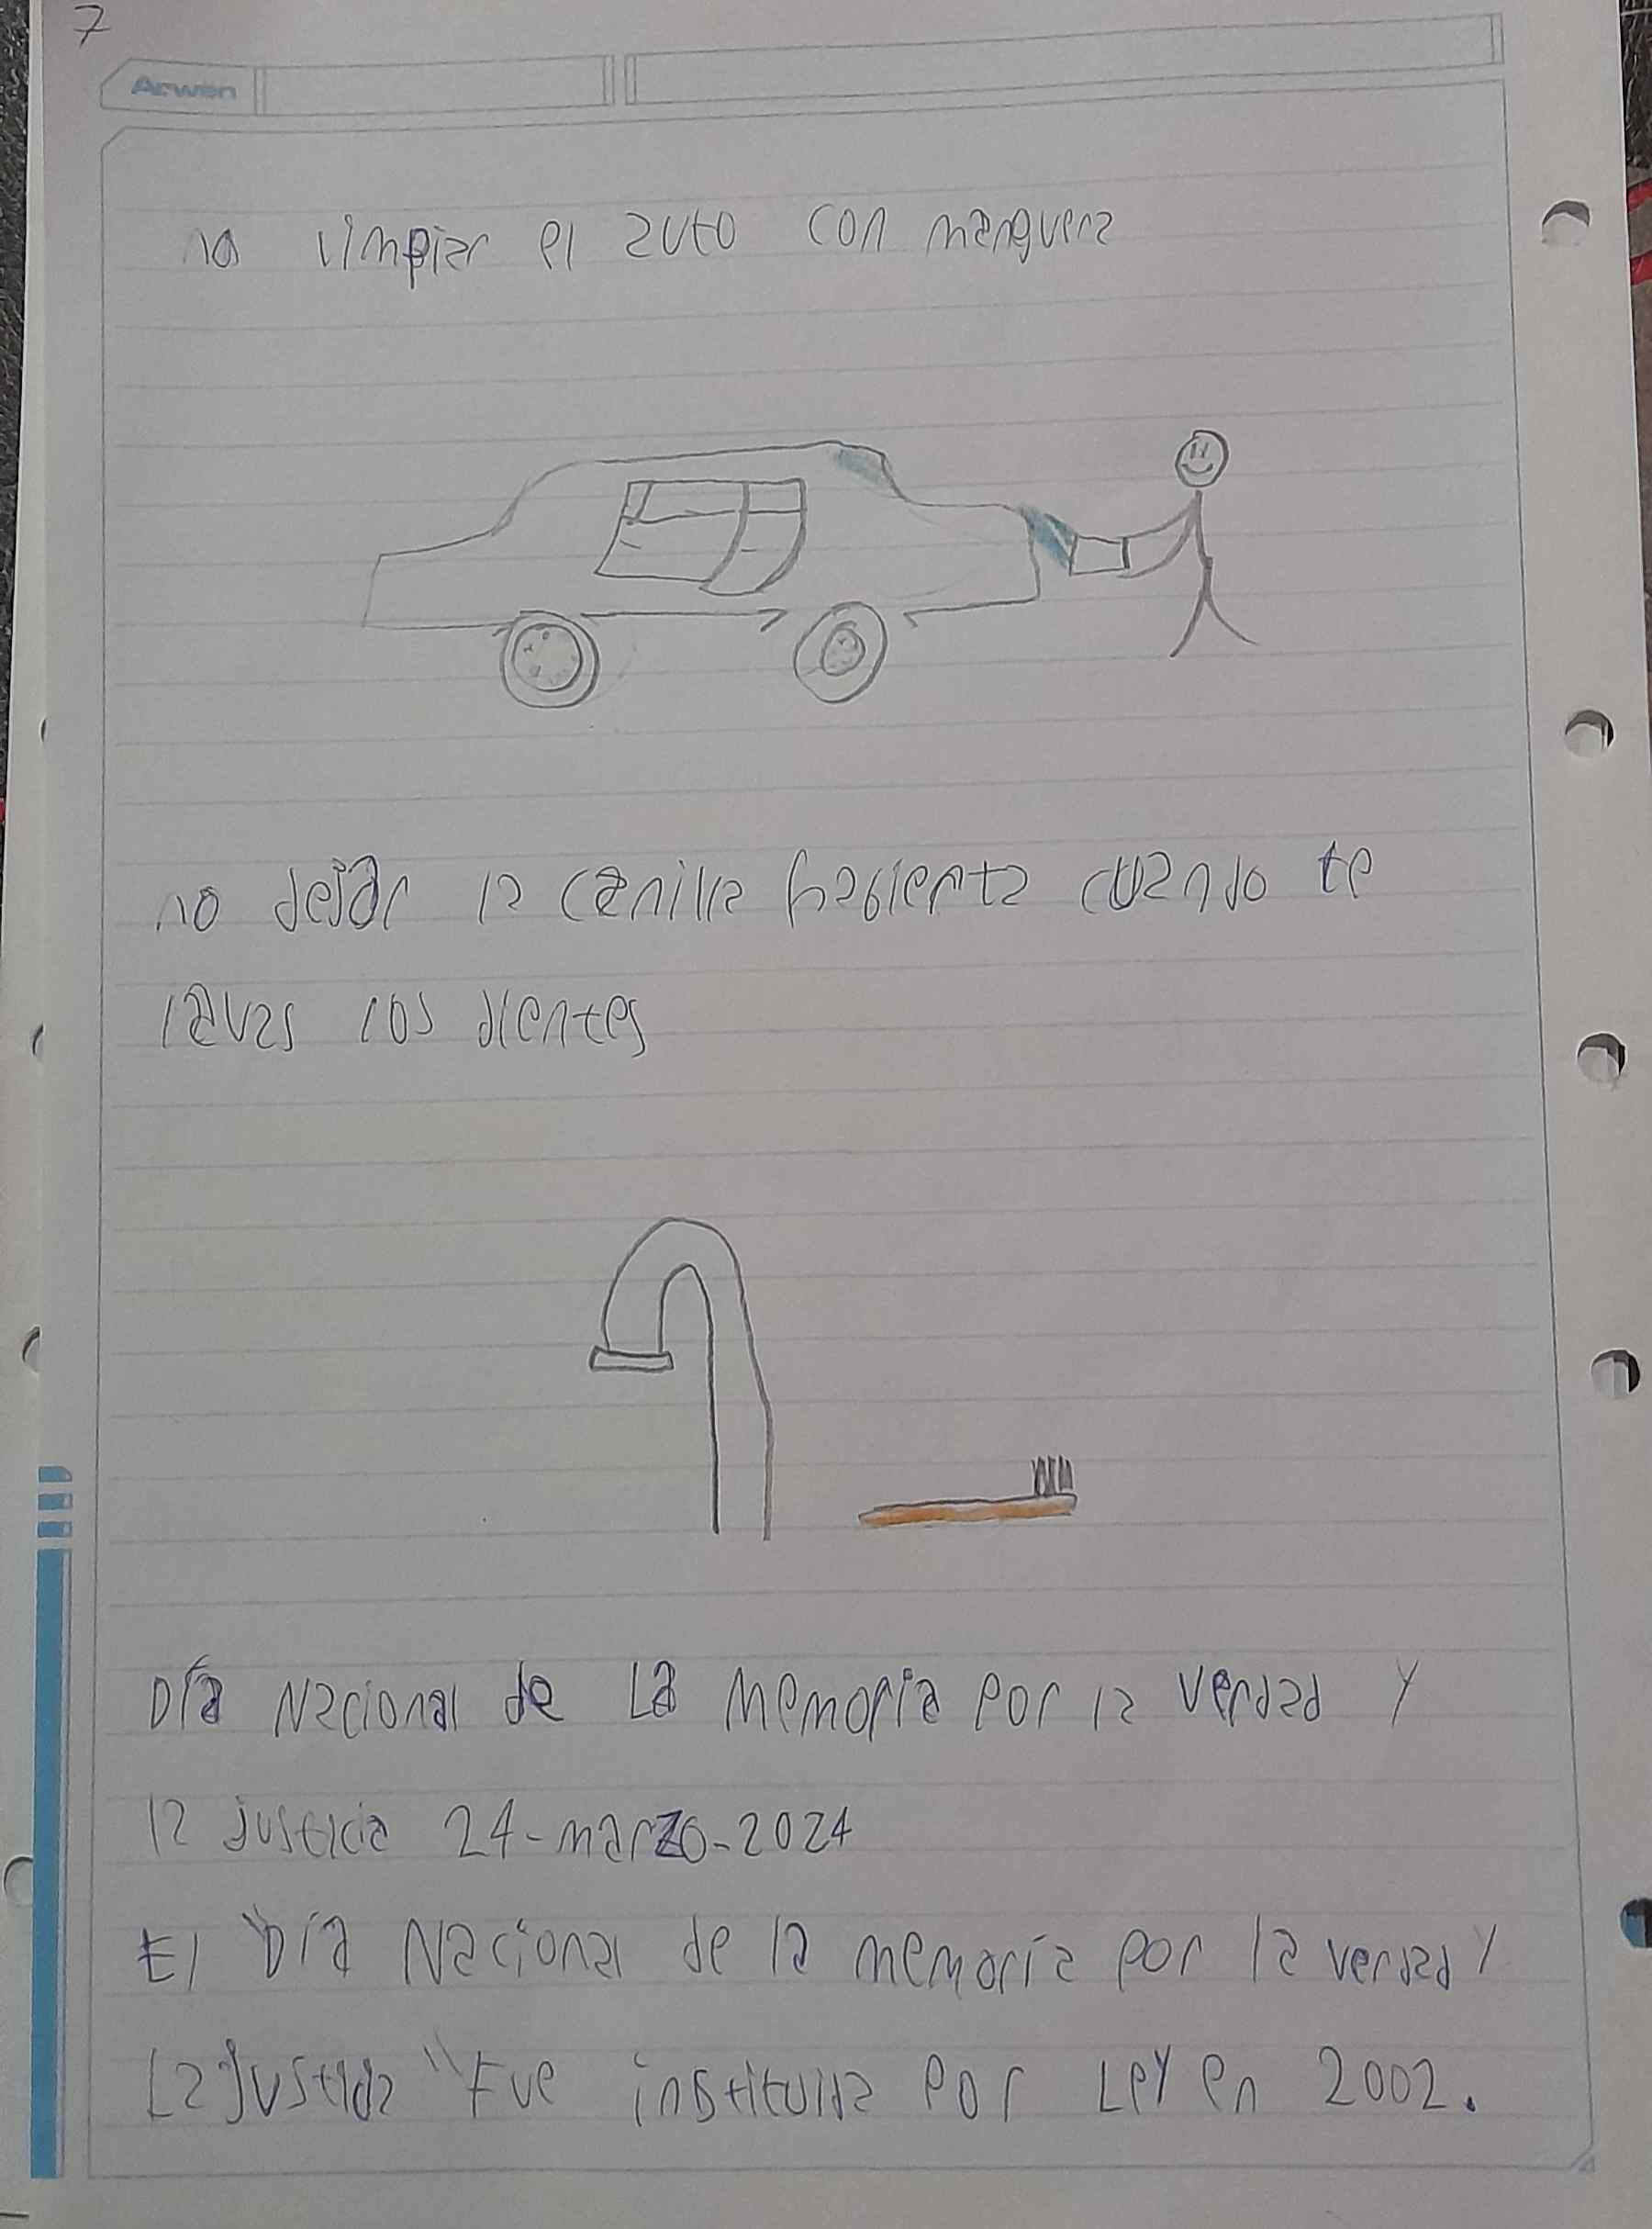 7
Arwen
no limpiar el auto con manguera
no dejar la canilla habierta cuando te
lavas los dientes
Día Nacional de La Memoria por la verdad y
la justicia 24-marzo-2024
El "Día Nacional de la memoria por la verdad y
La justicia" Fue instituida por Ley en 2002.